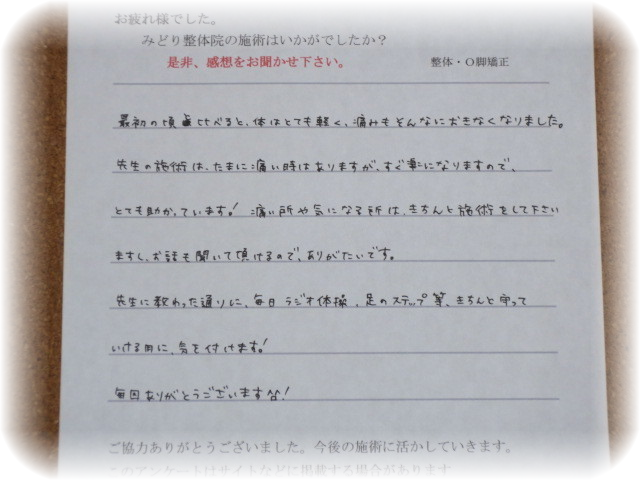 お疲れ様でした。
みどり整体院の施術はいかがでしたか?
是非、感想をお聞かせ下さい。 整体・O脚矯正
最初の頃と比べると、体はとても軽く、痛みもそんなにおきなくなりました。
先生の施術は、たまに痛い時はありますが、すぐ楽になりますので、
とても助かっています! 痛い所や気になる所は、きちんと施術をして下さい
ますし、お話も聞いて頂けるので、ありがたいです。
先生に教わった通りに、毎日ラジオ体操、足のステップ等、きちんと守って
いける用に、気を付けます!
毎回ありがとうございます!
ご協力ありがとうございました。今後の施術に活かしていきます。
このアンケートはサイトなどに掲載する場合があります